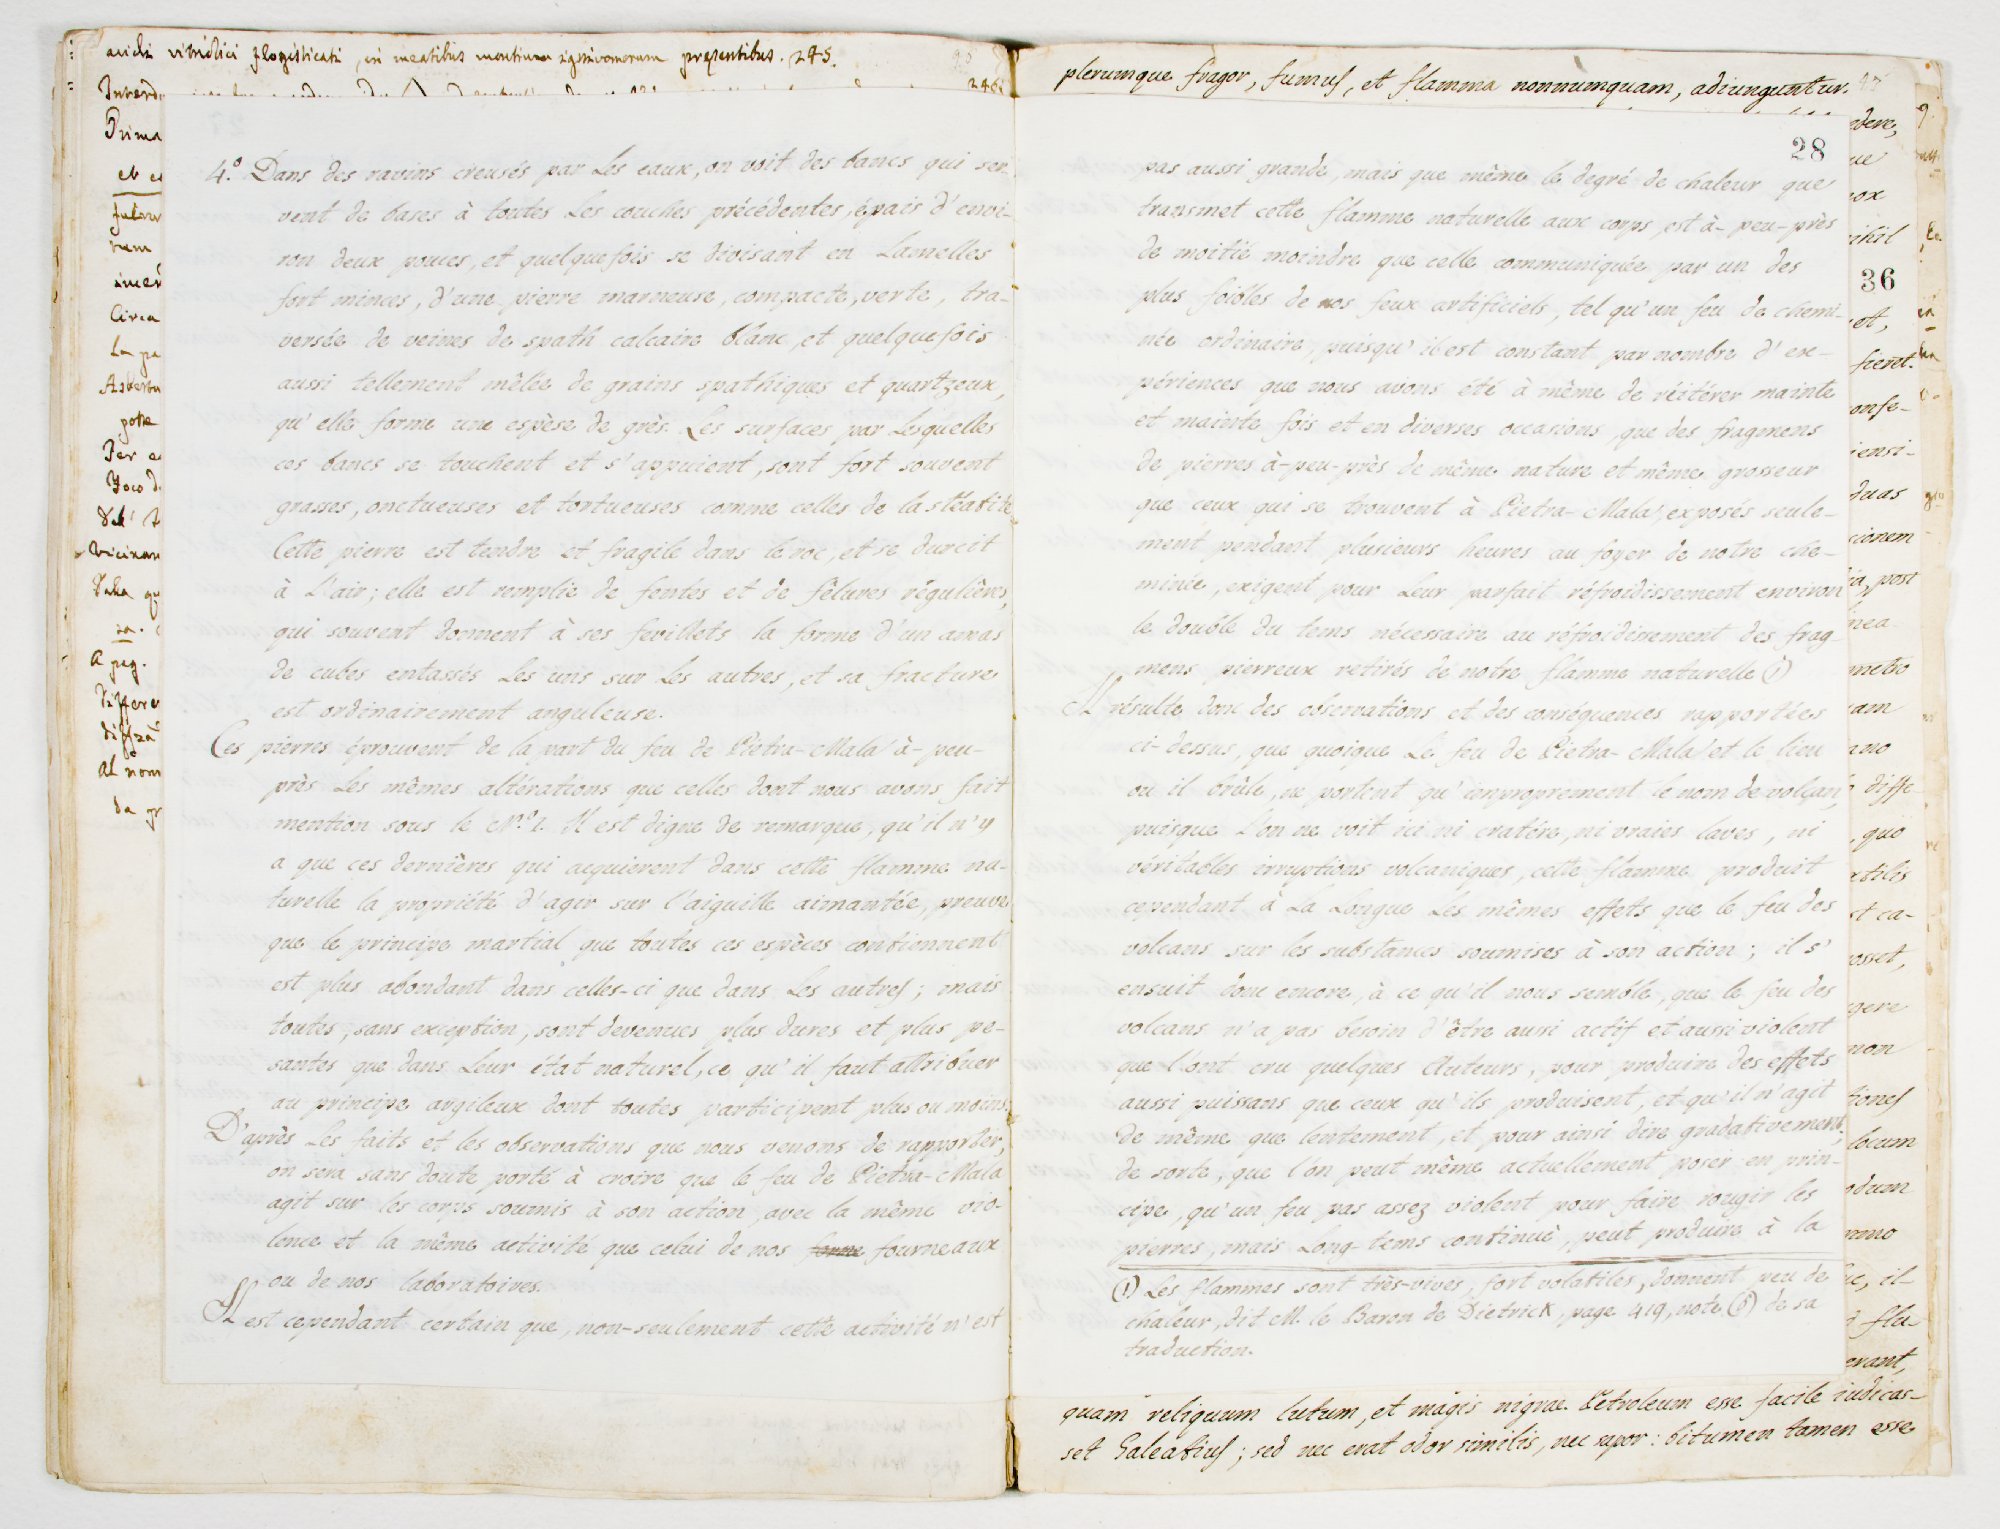 acidi vitriolici flogisticati, in meatibus montium ignivomorum presentibus. 245.
246
Prima
Circa
differen
da gr
4.° Dans des ravins creusés par Les eaux, on voit des bancs qui ser-
vent de bases à toutes Les couches précédentes, épais d'envi-
ron deux pouces, et quelquefois se divisant en Lamelles
fort minces, d'une pierre marneuse, compacte, verte, tra-
versée de veines de spath calcaire blanc, et quelquefois
aussi tellement mêlée de grains spathiques et quartzeux,
qu'elle forme une espèse de grès. Les surfaces par Lesquelles
ces bancs se touchent et s'appuient, sont fort souvent
grasses, onctueuses et tortueuses comme celles de la stéatite
Cette pierre est tendre et fragile dans le roc, et se durcit
à L'air; elle est remplie de fentes et de fêlures régulières,
qui souvent donnent à ses feuillets la forme d'un amas
de cubes entassés Les uns sur Les autres, et sa fracture
est ordinairement anguleuse.
Ces pierres éprouvent de la part du feu de Pietra-Mala à-peu-
près Les mêmes altérations que celles dont nous avons fait
mention sous le N.° 1. Il est digne de remarque, qu'il n'y
a que ces dernières qui acquierent dans cette flamme na-
turelle la propriété d'agir sur l'aiguille aimantée, preuve
que le principe martial que toutes ces espèces contiennent
est plus abondant dans celles-ci que dans Les autres; mais
toutes, sans exception, sont devenues plus dures et plus pe-
santes que dans Leur état naturel, ce qu'il faut attribuer
au principe argileux dont toutes participent plus ou moins.
D'après Les faits et les observations que nous venons de rapporter,
on sera sans doute porté à croire que le feu de Pietra-Mala
agit sur les corps soumis à son action, avec la même vio-
lence et la même activité que celui de nos fourneaux
ou de nos laboratoires.
Il est cependant certain que, non-seulement cette activité n'est
plerumque fragor, fumus, et flamma nonnumquam, adiunguntur.
28
pas aussi grande, mais que même le degré de chaleur que
transmet cette flamme naturelle aux corps est à-peu-près
de moitié moindre que celle communiquée par un des
plus foibles de nos feux artificiels, tel qu'un feu de chemi-
née ordinaire, puisqu'il est constant par nombre d'ex-
périences que nous avons été à même de réitérer mainte
et mainte fois et en diverses occasions, que des fragmens
de pierres à-peu-près de même nature et même grosseur
que ceux qui se trouvent à Pietra-Mala, exposés seule-
ment pendant plusieurs heures au foyer de notre che-
minée, exigent pour Leur parfait réfroidissement environ
le double du tems nécessaire au réfroidissement des frag-
mens pierreux retirés de notre flamme naturelle (1)
Il résulte donc des observations et des conséquences rapportées
ci-dessus, que quoique Le feu de Pietra-Mala et le lieu
ou il brûle, ne portent qu'improprement le nom de volcan,
puisque L'on ne voit ici ni cratére, ni vraies laves, ni
véritables irruptions volcaniques, cette flamme produit
cependant à La Longue Les mêmes effets que le feu des
volcans sur les substances soumises à son action; il s'
ensuit donc encore, à ce qu'il nous semble, que le feu des
volcans n'a pas besoin d'être aussi actif et aussi violent
que l'ont cru quelques Auteurs, pour produire des effets
aussi puissans que ceux qu'ils produisent, et qu'il n'agit
de même que lentement, et pour ainsi dire gradativement;
de sorte, que l'on peut même actuellement poser en prin-
cipe, qu'un feu pas assez violent pour faire rougir les
pierres, mais Long-tems continué, peut produire à la
(1) Les flammes sont très-vives, fort volatiles, donnent peu de
chaleur, dit M. le Baron de Dietrick, page 419, note (6) de sa
traduction.
36
fieret.
onse-
iensi-
duas
cionem
post
metro
diffe-
quo
locum
quam reliquum lutum, et magis nigrae. Petroleum esse facile iudicas-
set Galeatius; sed nec erat odor similis, nec sapor: bitumen tamen esse